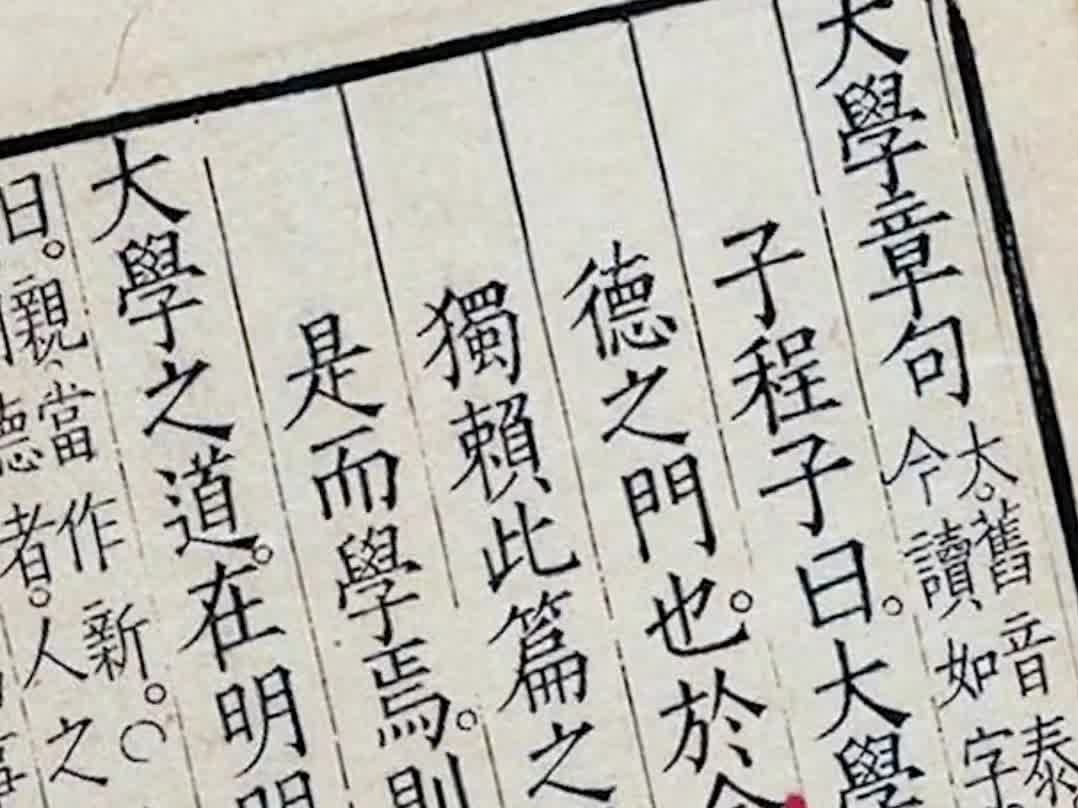 大學章句
大舊音泰
今讀如字
子程子曰。大學
德之門也。於今
獨賴此篇之
是而學焉。則
大學之道。在明明
曰。親、當作新。○
德者。人之